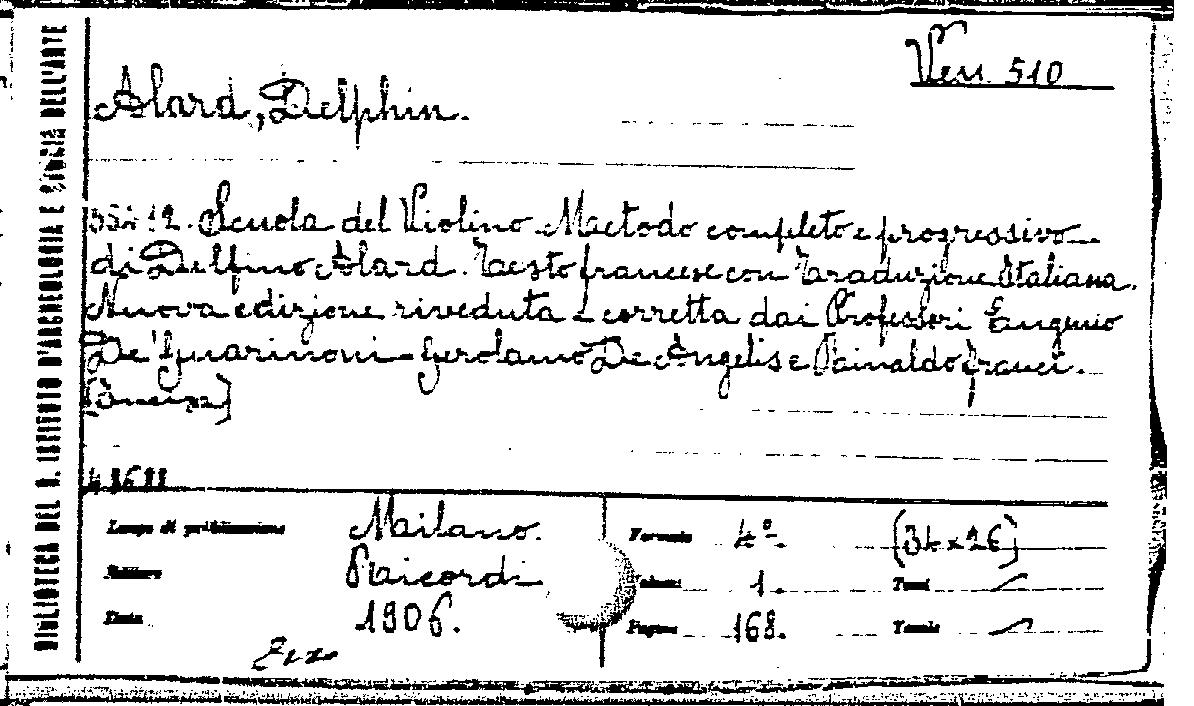 BIBLIOTECA DEL R. ISTITUTO D'ARCHEOLOGIA E STORIA DELL'ARTE
Ven. 510
Alard, Delphin.
Scuola del Violino Metodo completo e progressivo
di Delfino Alard. Testo francese con traduzione Italiana.
Nuova edizione riveduta e corretta dai Professori Eugenio
De' Guarinoni - Gerolamo De Angelis e Rainaldo franci.
Luogo di pubblicazione Milano. Formato 4º. (34 x 26)
Editore Ricordi Volumi 1. Tomi
Data 1906. Pagine 168. Tavole